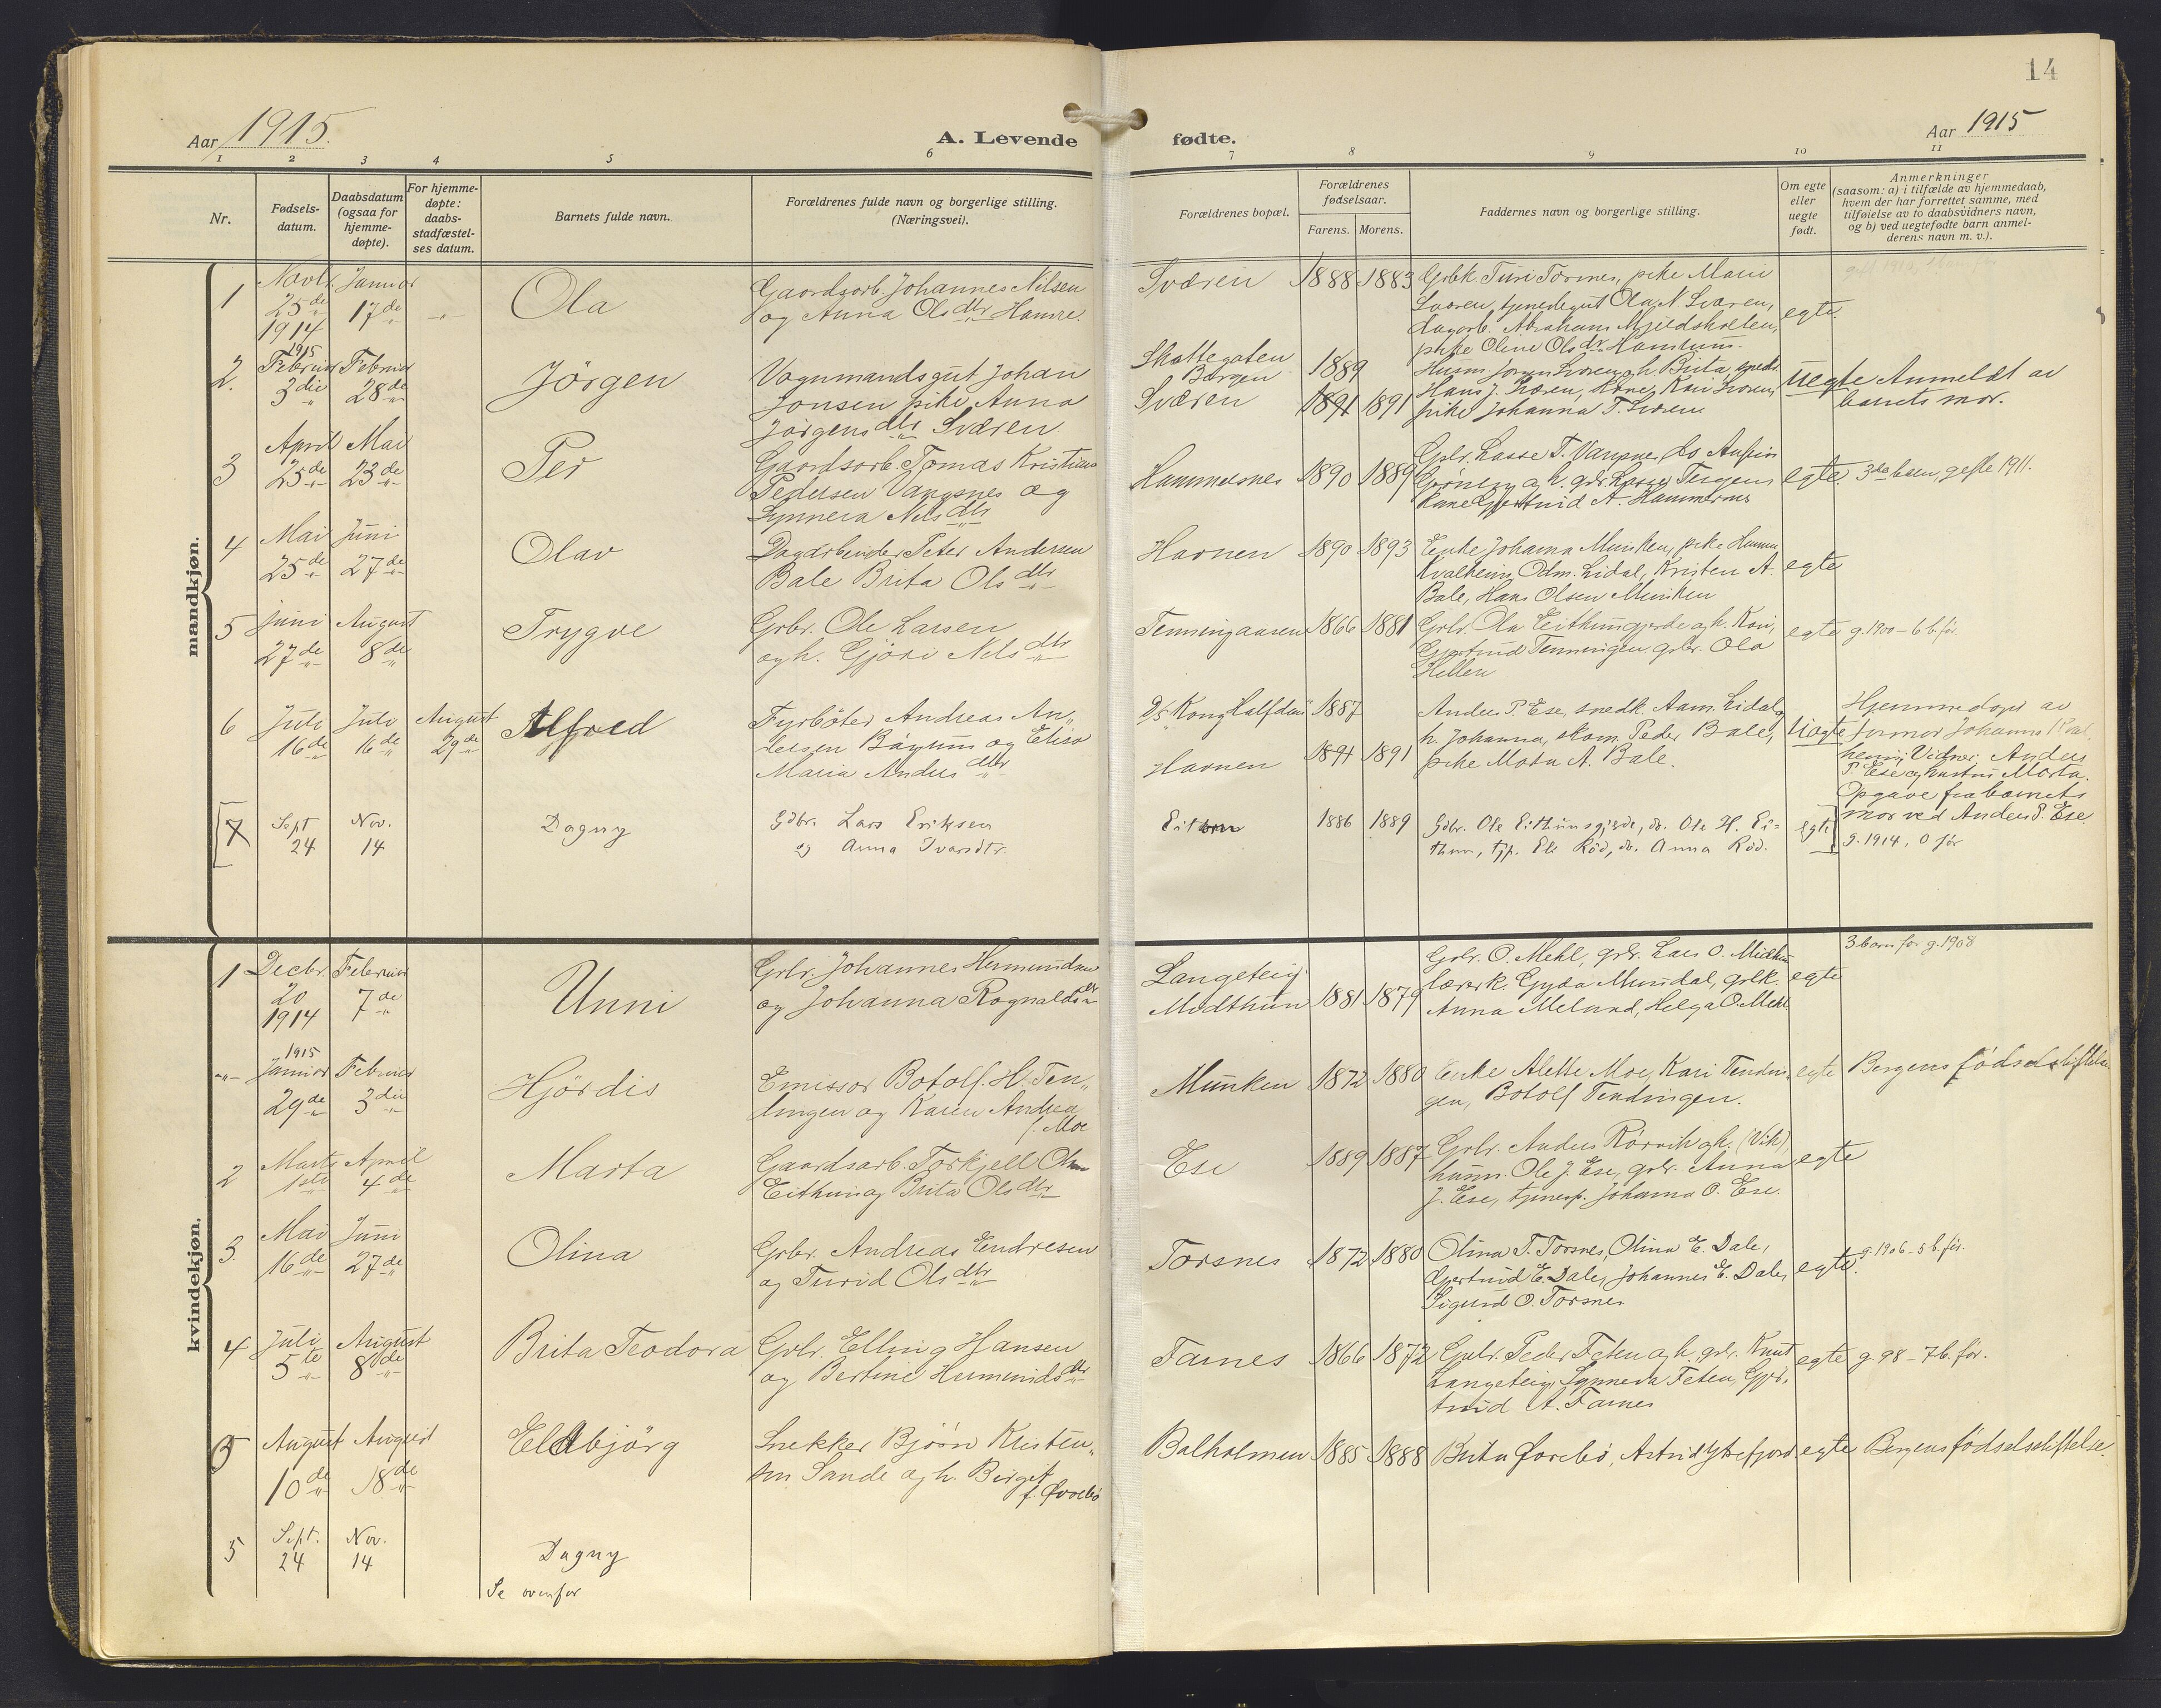 14
Aar 1915.
A. Levende fødte.
Aar 1915
1 2 3 4 5 6 7 8 9 10 11
Nr.
Fødselsdatum.
Daabsdatum (ogsaa for hjemmedøpte).
For hjemmedøpte: daabsstadfæstelses datum.
Barnets fulde navn.
Forældrenes fulde navn og borgerlige stilling. (Næringsvei).
Forældrenes bopæl.
Forældrenes fødselsaar.
Farens. Morens.
Faddernes navn og borgerlige stilling.
Om egte eller uegte født.
Anmerkninger (saasom: a) i tilfælde av hjemmedaab, hvem der har forrettet samme, med tilføielse av to daabsvidners navn, og b) ved uegtefødte barn anmelderens navn m. v.).
mandkjøn.
1 Novbr. 25de 1914
Januar 17de
Ola
Gaardsarb. Johannes Nilsen
og Anna Olsdtr Hamre.
Sværen 1888 1883
Grbk. Turi Torsnes, pike Mari
Sværen, tjenestegut Ola N. Sværen,
dagarb. Abraham
pike Oline Olsdr.
egte.
2. 1915 Februar 3die
Februar 28de
Jörgen
Vognmandsgut Johan
Jonsen pike Anna
Jörgensdtr Sværen
Skattegaten Bergen 1889
Sværen 1891 1891
Husm. Sværen og h. Brita, snedk.
Hans J. Sværen, kone Kari Sværen,
pike Johanna T. Sværen
Uegte
Anmeldt av
barnets mor.
3 April 25de
Mai 23de
Per
Gaardsarb. Tomas Kristian
Pedersen Vangsnes og
Synneva Nilsdtr
Hammersnes 1890 1889
Grbr. Lasse T. Vangsnes, do
kone Gjertrud A. Hammersnes
egte.
3die barn, gifte 1911.
4 Mai 25de
Juni 27de
Olav
Dagarbeider Peter Andersen
Bale Brita Olsdtr
Havnen 1890 1893
Enke Johanna Munken, pike Hanna
Kvalheim, Odm. Lidal, Kristen A.
Bale, Hans Olsen Munken
egte
5 Juni 27de
August 8de
Trygve
Grbr. Ole Larsen
og h. Gjöri Nilsdtr
Tenningaasen 1866 1881
Grbr. Ola Eithungjerde og h. Kari,
Gjertrud Tenningen, grbr. Ola
Hellen
egte g. 1900 - 6 b. før.
6 Juli 16de
Juli 16de
August 29de
Alfred
Fyrböter Andreas An-
dersen Böyum og Elisa
Maria Andersdtr
D/S Kong Halfdan 1887
Havnen 1891 1891
Anders P. Ese, snedk. Aam. Lidal og
h. Johanna, skom. Peder Bale,
pike Marta A. Bale.
Uegte
Hjemmedøpt av
jormor Johanne Kval-
heim; Vidner: Anders
P. Ese og hustru Marta.
Opgave fra barnets
mor ved Anders P. Ese.
[7 Sept 24
Nov. 14
Dagny
Gdbr. Lars Eriksen
og Anna Ivarsdtr.
Eitun 1886 1889
Gdbr. Ole Eithunsgjerde, do. Ole H. Ei-
thun, tjp. Eli Röd, do. Anna Röd.
egte]
g. 1914, 0 før
kvindekjøn.
1 Decbr. 20 1914
Februar 7de
Unni
Grbr. Johannes Hermundsen
og Johanna Rognaldsdtr
Langeteig
Midthun 1881 1879
Grbr. O. Mehl, grbr. Lars O. Midthun
lærerk. Gyda Mundal, grbk.
Anna Melund, Helga O. Mehl
egte
3 barn før g. 1908
-"- 1915 Januar 29de
Februar 3die
Hjördis
Emissær Botolf H. Ten-
dingen og Karen Andrea
f. Moe
Munken 1872 1880
Enke Alette Moe, Kari Tendin-
gen, Botolf Tendingen.
egte
Bergens fødselsstiftelse
2 Marts 1ste
April 4de
Marta
Gaardsarb. Torkjell Olsen
Eithun og Brita Olsdtr
Ese 1889 1887
Grbr. Anders Rørvik og h. (Vik),
husm. Ole J. Ese, grbr. Anna
J. Ese, tjenesp. Johanna O. Ese.
egte
3. Mai 16de
Juni 27de
Olina
Grbr. Andreas Endresen
og Turid Olsdtr
Torsnes 1872 1880
Olina T. Torsnes, Olina E. Dale,
Gjertrud E. Dale, Johannes E. Dale,
Sigurd O. Torsnes
egte.
g. 1906 - 5 b. før.
4 Juli 5te
August 8de
Brita Teodora
Grbr. Elling Hansen
og Bertine Hermundsdtr
Farnes 1866 1872
Grbr. Peder Feten og h., grbr. Knut
Langeteig, Synneva Feten, Gjer-
trud A. Farnes
egte g. 98 - 7 b. før.
5 August 10de
August 18de
Eldbjörg
Snekker Bjørn Kristen-
sen Sande og h. Birgit
f. Øvrebö
Balholmen 1885 1888
Brita Øvrebö, Astrid Ytrefjord
egte Bergens fødselsstiftelse.
5 Sept. 24
Nov. 14
Dagny
Se ovenfor